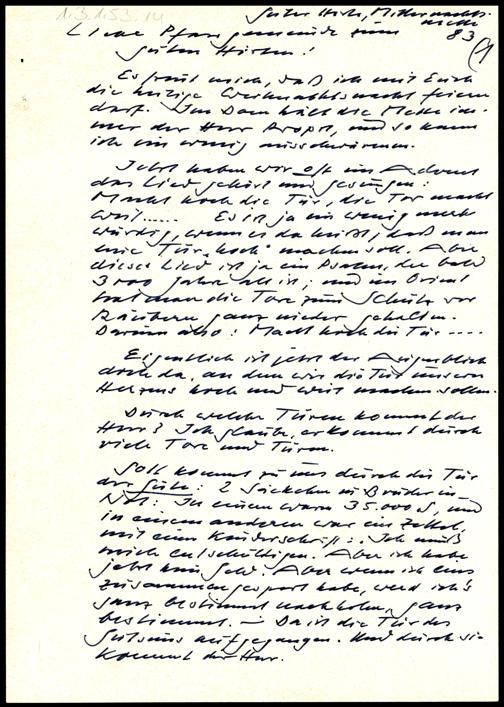 1.3.1.53.14
Guter Hirte, Mitternachts-
mette
83
(1
Liebe Pfarrgemeinde zum
Guten Hirten!
Es freut mich, daß ich mit Euch
die heilige Weihnachtsnacht feiern
darf. Im Dom hält die Mette im-
mer der Herr Propst, und so kann
ich ein wenig ausschwärmen.
Jetzt haben wir oft im Advent
das Lied gehört und gesungen:
Macht hoch die Tür, die Tor macht
weit..... Es ist ja ein wenig merk
würdig, wenn es da heißt, daß man
eine Tür "hoch" machen soll. Aber
dieses Lied ist ja ein Psalm, der bald
3000 Jahre alt ist; und im Orient
hat man die Tore zum Schutz vor
Räubern ganz nieder gehalten.
Darum also: Macht hoch die Tür ----
Eigentlich ist jetzt der Augenblick
doch da, an dem wir die Tür unseres
Herzens hoch und weit machen sollen.
Durch welche Türen kommt der
Herr? Ich glaube, er kommt durch
viele Tore und Türen.
Gott kommt zu uns durch die Tür
der Güte: 2 Säckchen für Bruder in
Not: In einem waren 35.000 S, und
in einem anderen war ein Zettel,
mit einer Kinderschrift: Ich muß
mich entschuldigen. Aber ich habe
jetzt kein Geld. Aber wenn ich eins
zusammengespart habe, werd ich's
ganz bestimmt nachholen, ganz
bestimmt. – Da ist die Tür des
Gutseins aufgegangen. Und durch sie
kommt der Herr.